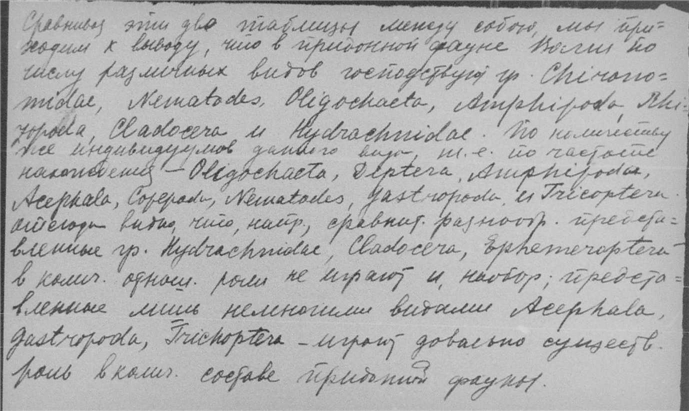 Сравнивая эти два таблицы между собою, мы при-
ходим к выводу, что в придонной фауне Волги по
числу различных видов господствуют гр. Chirono-
midae, Nematodes, Oligochaeta, Amphipoda, Rhi-
zopoda, Cladocera и Hydrachnidae. По количеству
же индивидуумов данного вида, т.е. по частоте
нахождения – Oligochaeta, Diptera, Amphipoda,
Acephala, Copepoda, Nematodes, Gastropoda и Tricoptera.
Отсюда видно, что, напр., сравнит. разнообр. предста-
вленные гр. Hydrachnidae, Cladocera, Ephemeroptera
в колич. отнош. роли не играют и, наобор., предста-
вленные лишь немногими видами Acephala,
Gastropoda, Trichoptera – играют довольно существ.
роль в колич. составе придонной фауны.